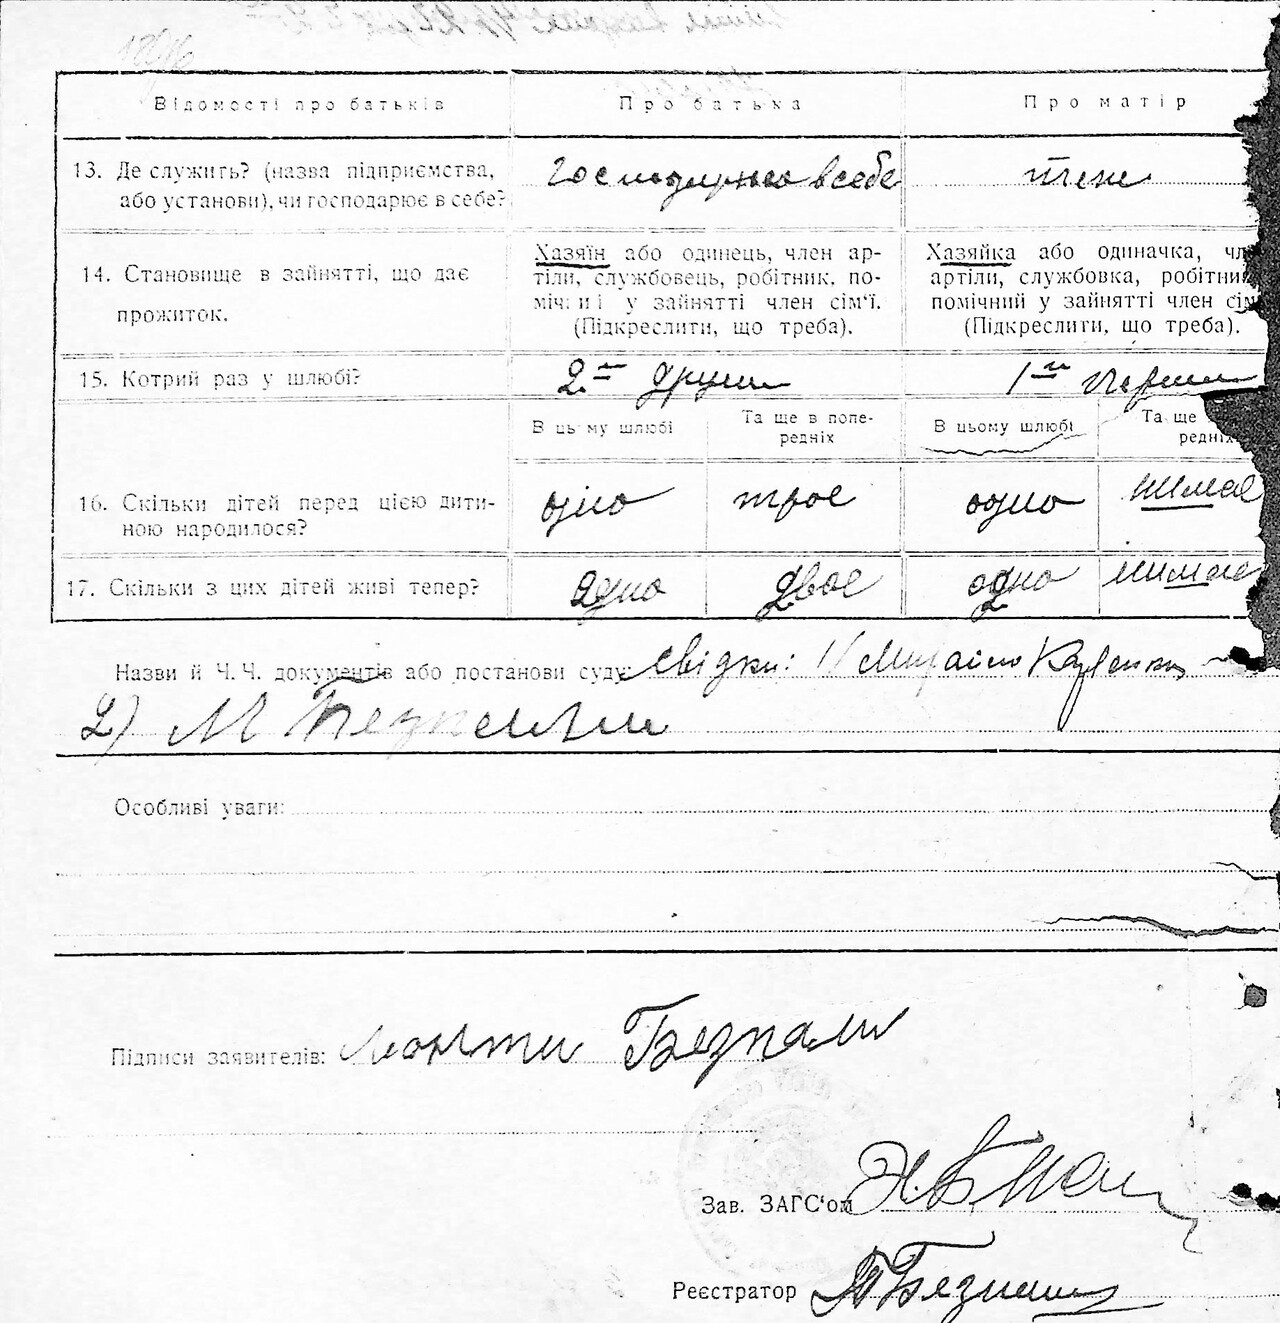 Відомості про батьків
Про батька
Про матір
13. Де служить? (назва підприємства,
або установи), чи господарює в себе?
в себе
теж
14. Становище в зайнятті, що дає
прожиток.
Хазяїн або одинець, член ар-
тіли, службовець, робітник, по-
міч и і у зайнятті член сім'ї.
(Підкреслити, що треба).
Хазяйка або одиначка, чл
артіли, службовка, робітни
помічний у зайнятті член сім
(Підкреслити, що треба).
15. Котрий раз у шлюбі?
2й други
1й перши
В цьому шлюбі
Та ще в попе-
редніх
В цьому шлюбі
Та ще
редніх
16. Скільки дітей перед цією дити-
ною народилося?
одно
трое
одно
нимае
17. Скільки з цих дітей живі тепер?
одно
двое
одно
нимае
Назви й Ч. Ч. документів або постанови суду: Свідки: 1/ Михаіло
2) М
Особливі уваги:
Підписи заявителів: Безпали
Зав. ЗАГС'ом
Реєстратор